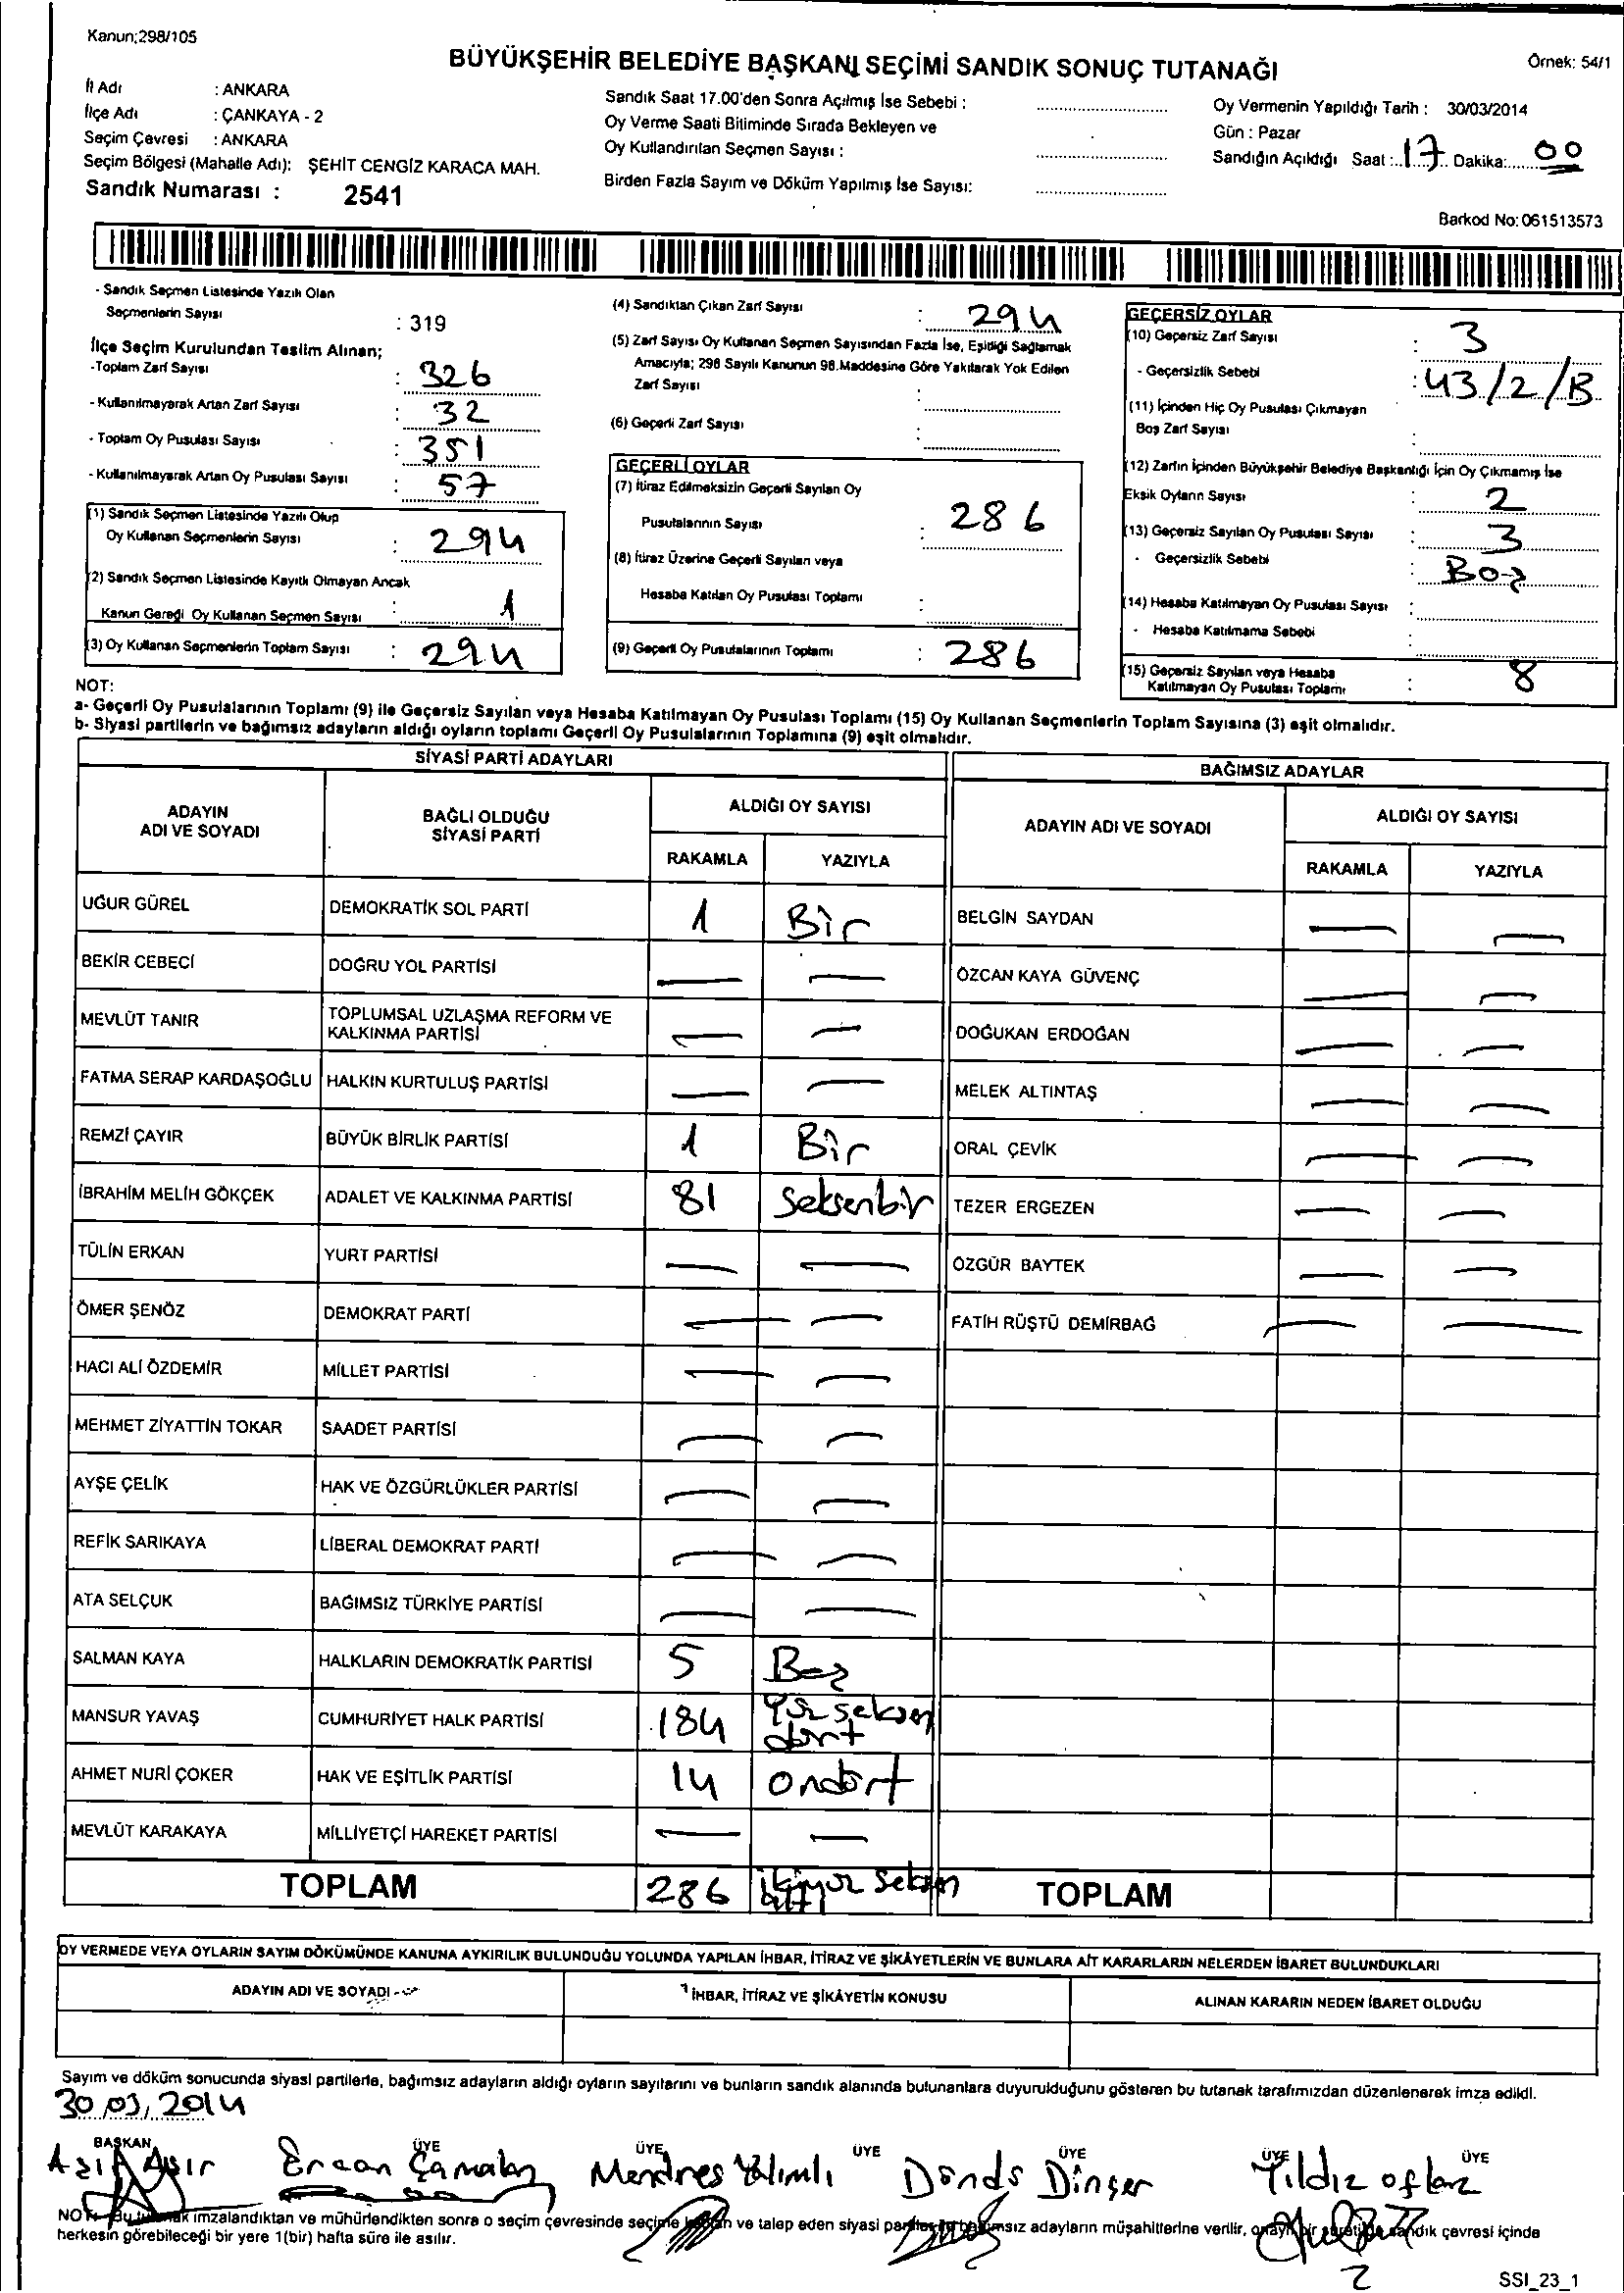 Kanun;298/105
BÜYÜKŞEHİR BELEDİYE BAŞKANI SEÇİMİ SANDIK SONUÇ TUTANAĞI
Örnek: 54/1
İl Adı : ANKARA
İlçe Adı : ÇANKAYA - 2
Seçim Çevresi : ANKARA
Seçim Bölgesi (Mahalle Adı): ŞEHİT CENGİZ KARACA MAH.
Sandık Numarası : 2541
Sandık Saat 17.00'den Sonra Açılmış İse Sebebi :
Oy Verme Saati Bitiminde Sırada Bekleyen ve
Oy Kullandırılan Seçmen Sayısı :
Birden Fazla Sayım ve Döküm Yapılmış İse Sayısı:
Oy Vermenin Yapıldığı Tarih : 30/03/2014
Gün : Pazar
Sandığın Açıldığı Saat : 17 Dakika: 00
Barkod No: 061513573
- Sandık Seçmen Listesinde Yazılı Olan
Seçmenlerin Sayısı : 319
İlçe Seçim Kurulundan Teslim Alınan;
-Toplam Zarf Sayısı : 326
- Kullanılmayarak Artan Zarf Sayısı : 32
- Toplam Oy Pusulası Sayısı : 351
- Kullanılmayarak Artan Oy Pusulası Sayısı : 57
(1) Sandık Seçmen Listesinde Yazılı Olup
Oy Kullanan Seçmenlerin Sayısı : 294
(2) Sandık Seçmen Listesinde Kayıtlı Olmayan Ancak
Kanun Gereği Oy Kullanan Seçmen Sayısı : 1
(3) Oy Kullanan Seçmenlerin Toplam Sayısı : 294
(4) Sandıktan Çıkan Zarf Sayısı : 294
(5) Zarf Sayısı Oy Kullanan Seçmen Sayısından Fazla İse, Eşitliği Sağlamak
Amacıyla; 298 Sayılı Kanunun 98.Maddesine Göre Yakılarak Yok Edilen
Zarf Sayısı :
(6) Geçerli Zarf Sayısı :
GEÇERLİ OYLAR
(7) İtiraz Edilmeksizin Geçerli Sayılan Oy
Pusulalarının Sayısı : 286
(8) İtiraz Üzerine Geçerli Sayılan veya
Hesaba Katılan Oy Pusulası Toplamı :
(9) Geçerli Oy Pusulalarının Toplamı : 286
GEÇERSİZ OYLAR
(10) Geçersiz Zarf Sayısı : 3
- Geçersizlik Sebebi : 43/2/B
(11) İçinden Hiç Oy Pusulası Çıkmayan
Boş Zarf Sayısı :
(12) Zarfın İçinden Büyükşehir Belediye Başkanlığı İçin Oy Çıkmamış İse
Eksik Oyların Sayısı : 2
(13) Geçersiz Sayılan Oy Pusulası Sayısı : 3
- Geçersizlik Sebebi : Boş
(14) Hesaba Katılmayan Oy Pusulası Sayısı :
- Hesaba Katılmama Sebebi :
(15) Geçersiz Sayılan veya Hesaba
Katılmayan Oy Pusulası Toplamı : 8
NOT:
a- Geçerli Oy Pusulalarının Toplamı (9) ile Geçersiz Sayılan veya Hesaba Katılmayan Oy Pusulası Toplamı (15) Oy Kullanan Seçmenlerin Toplam Sayısına (3) eşit olmalıdır.
b- Siyasi partilerin ve bağımsız adayların aldığı oyların toplamı Geçerli Oy Pusulalarının Toplamına (9) eşit olmalıdır.
SİYASİ PARTİ ADAYLARI
BAĞIMSIZ ADAYLAR
ADAYIN
ADI VE SOYADI
BAĞLI OLDUĞU
SİYASİ PARTİ
ALDIĞI OY SAYISI
RAKAMLA YAZIYLA
ADAYIN ADI VE SOYADI
ALDIĞI OY SAYISI
RAKAMLA YAZIYLA
UĞUR GÜREL DEMOKRATİK SOL PARTİ 1 Bir BELGİN SAYDAN — —
BEKİR CEBECİ DOĞRU YOL PARTİSİ — — ÖZCAN KAYA GÜVENÇ — —
MEVLÜT TANIR TOPLUMSAL UZLAŞMA REFORM VE
KALKINMA PARTİSİ — — DOĞUKAN ERDOĞAN — —
FATMA SERAP KARDAŞOĞLU HALKIN KURTULUŞ PARTİSİ — — MELEK ALTINTAŞ — —
REMZİ ÇAYIR BÜYÜK BİRLİK PARTİSİ 1 Bir ORAL ÇEVİK — —
İBRAHİM MELİH GÖKÇEK ADALET VE KALKINMA PARTİSİ 81 Seksenbir TEZER ERGEZEN — —
TÜLİN ERKAN YURT PARTİSİ — — ÖZGÜR BAYTEK — —
ÖMER ŞENÖZ DEMOKRAT PARTİ — — FATİH RÜŞTÜ DEMİRBAĞ — —
HACI ALİ ÖZDEMİR MİLLET PARTİSİ — —
MEHMET ZİYATTİN TOKAR SAADET PARTİSİ — —
AYŞE ÇELİK HAK VE ÖZGÜRLÜKLER PARTİSİ — —
REFİK SARIKAYA LİBERAL DEMOKRAT PARTİ — —
ATA SELÇUK BAĞIMSIZ TÜRKİYE PARTİSİ — —
SALMAN KAYA HALKLARIN DEMOKRATİK PARTİSİ 5 Beş
MANSUR YAVAŞ CUMHURİYET HALK PARTİSİ 184 Yüz seksen
dört
AHMET NURİ ÇOKER HAK VE EŞİTLİK PARTİSİ 14 Ondört
MEVLÜT KARAKAYA MİLLİYETÇİ HAREKET PARTİSİ — —
TOPLAM 286 ikiyüz seksen
altı TOPLAM
OY VERMEDE VEYA OYLARIN SAYIM DÖKÜMÜNDE KANUNA AYKIRILIK BULUNDUĞU YOLUNDA YAPILAN İHBAR, İTİRAZ VE ŞİKÂYETLERİN VE BUNLARA AİT KARARLARIN NELERDEN İBARET BULUNDUKLARI
ADAYIN ADI VE SOYADI
İHBAR, İTİRAZ VE ŞİKÂYETİN KONUSU
ALINAN KARARIN NEDEN İBARET OLDUĞU
Sayım ve döküm sonucunda siyasi partilerle, bağımsız adayların aldığı oyların sayılarını ve bunların sandık alanında bulunanlara duyurulduğunu gösteren bu tutanak tarafımızdan düzenlenerek imza edildi.
30.03.2014
BAŞKAN ÜYE ÜYE ÜYE ÜYE ÜYE ÜYE
Ercan Mendres Yalımlı Dinçer Yıldız
NOT: Bu tutanak imzalandıktan ve mühürlendikten sonra o seçim çevresinde seçime katılan ve talep eden siyasi partiler ile bağımsız adayların müşahitlerine verilir, onaylı bir suretide sandık çevresi içinde
herkesin görebileceği bir yere 1(bir) hafta süre ile asılır.
SSI_23_1